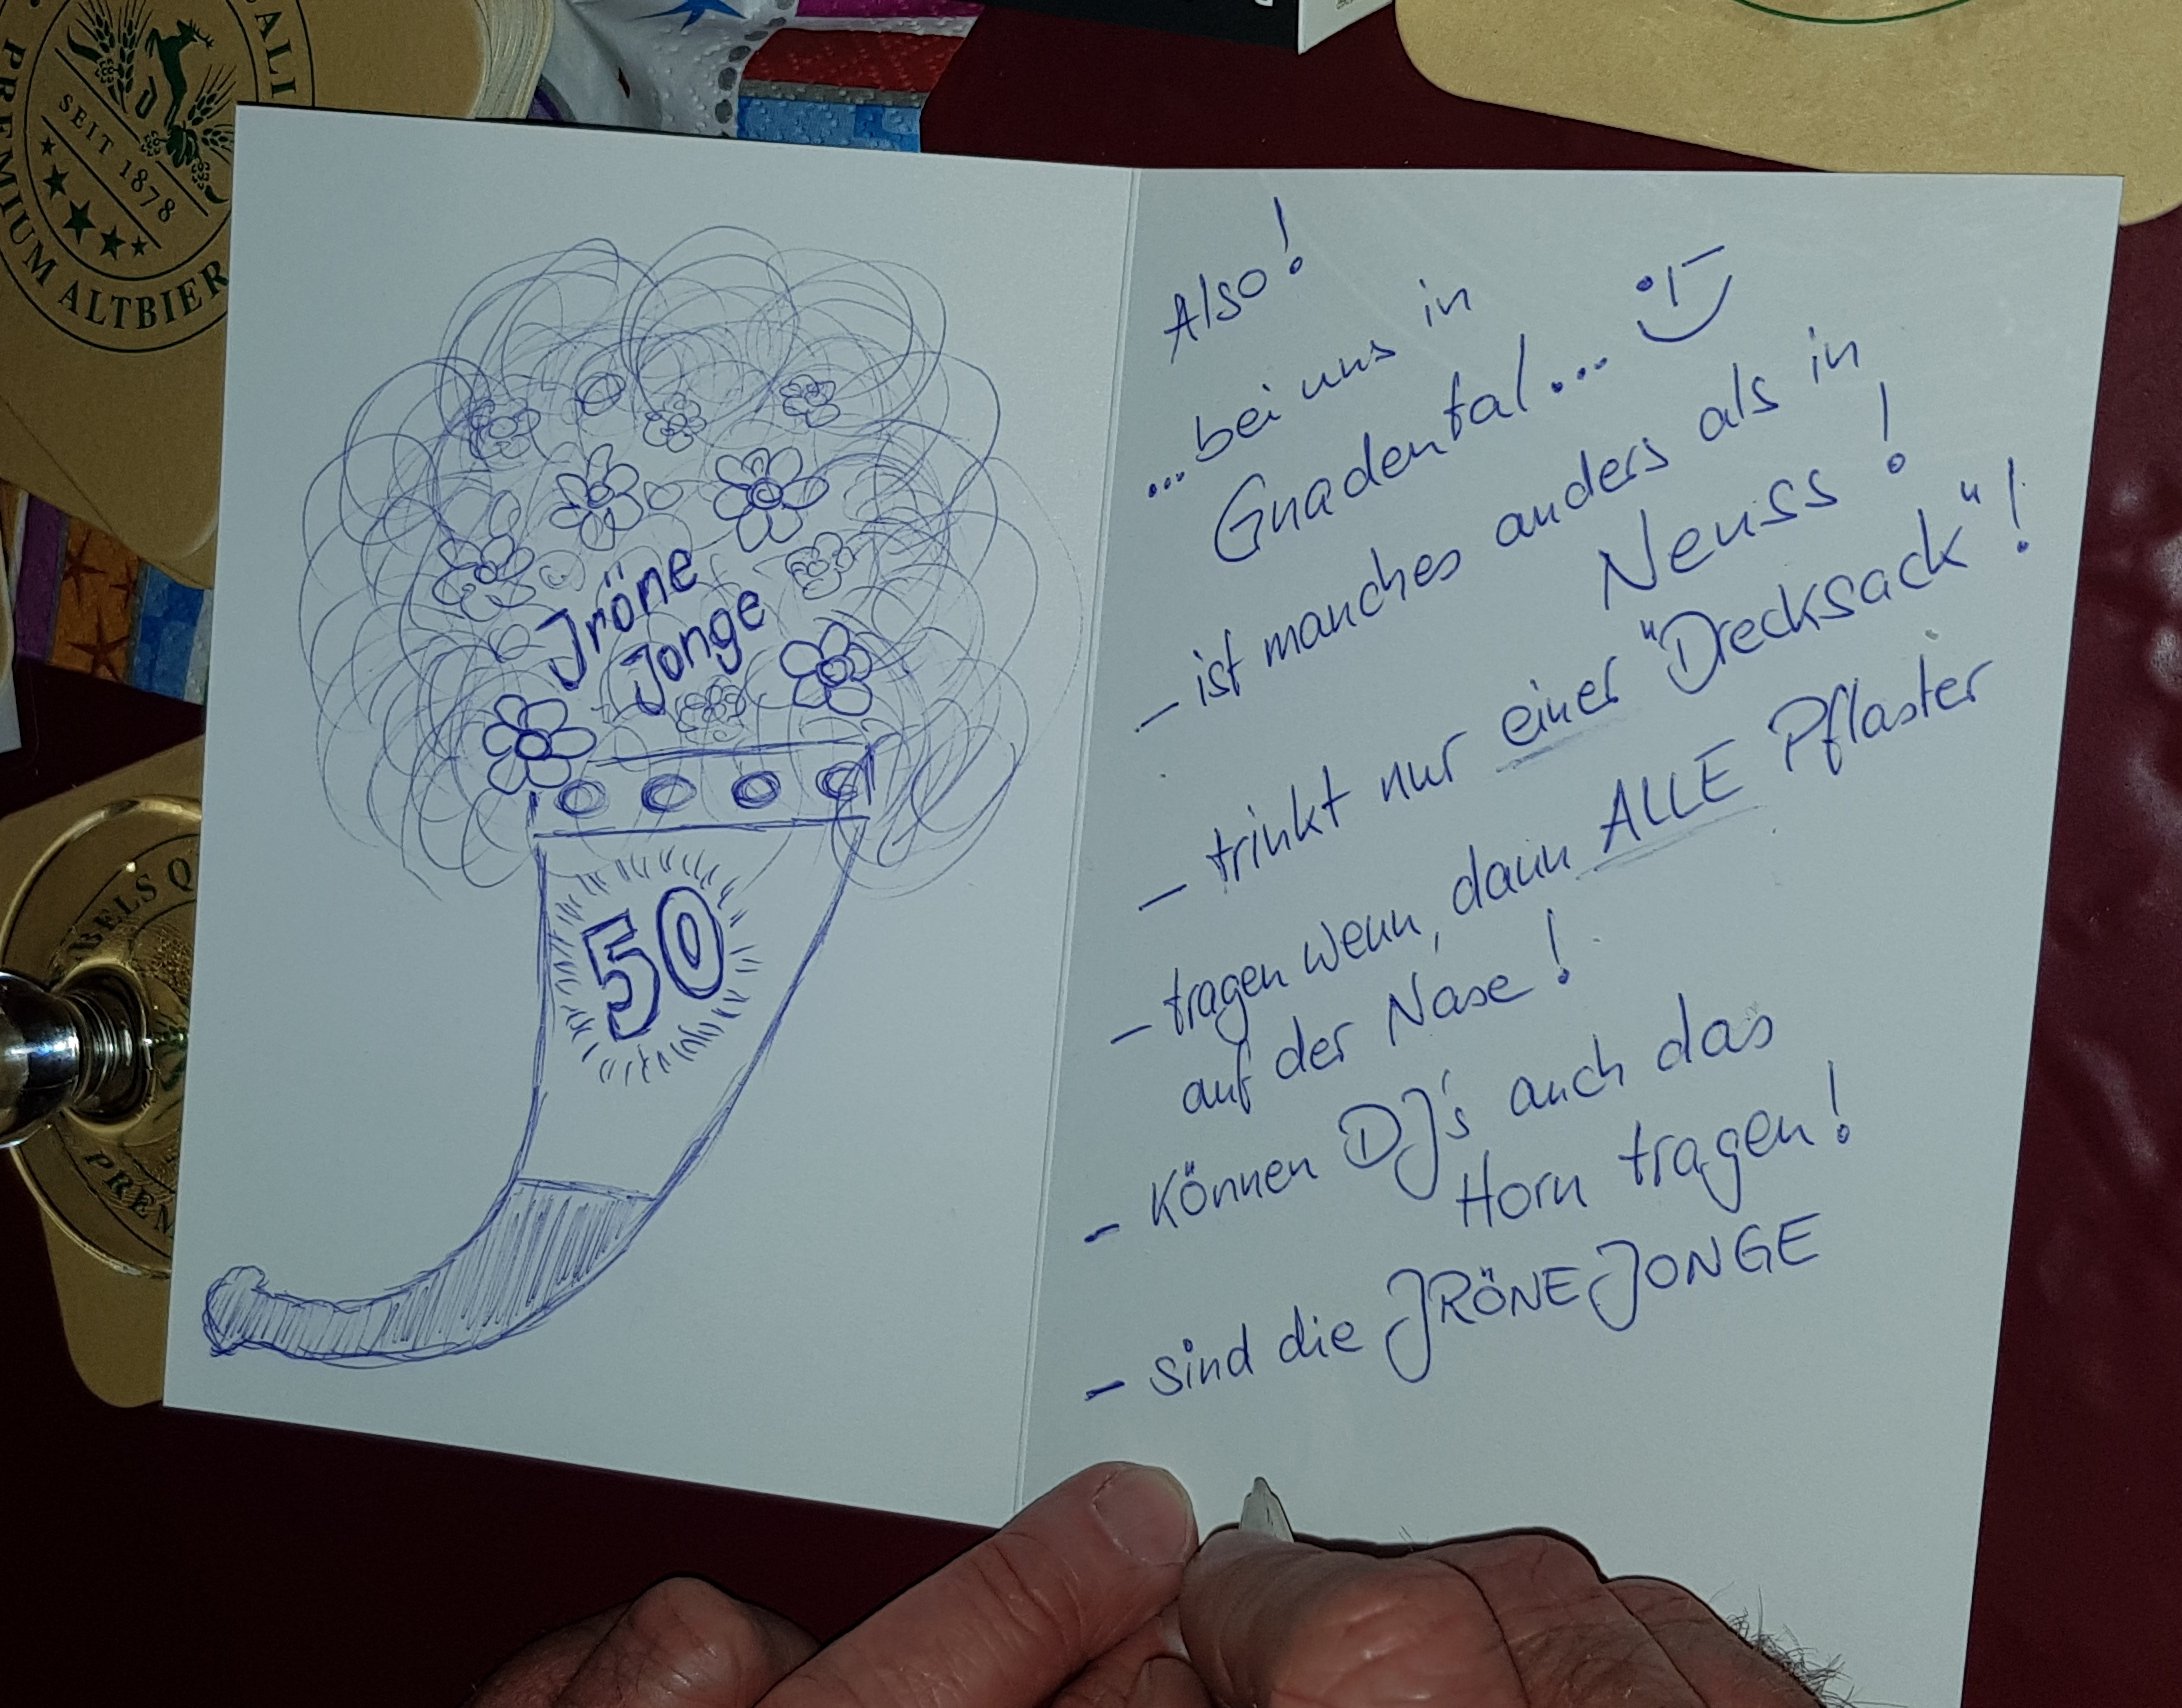 SEIT 1878
PREMIUM ALTBIER
Jröne
Jonge
50
Also!
...bei uns in
Gnadental...
- ist manches anders als in
Neuss!
- trinkt nur einer "Drecksack"!
- tragen wenn, dann ALLE Pflaster
auf der Nase!
- können DJ's auch das
Horn tragen!
- sind die JRÖNE JONGE